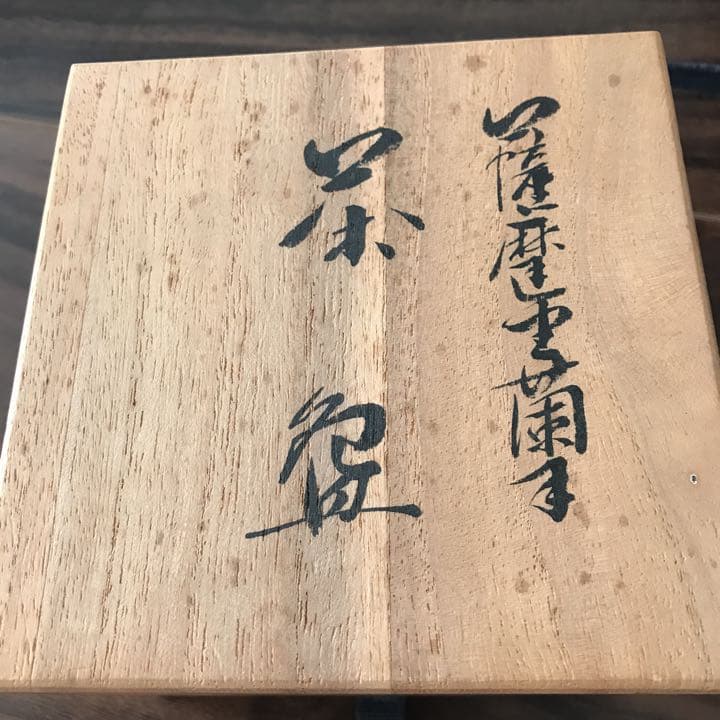 薩摩蘭手
茶盌